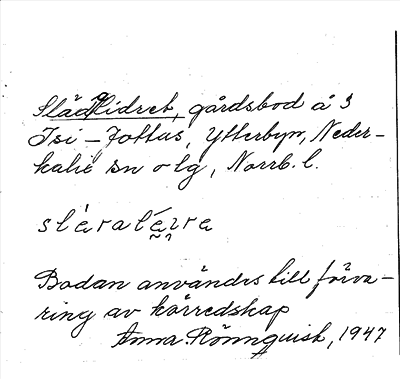 Slädlidret, gårdsbod å 3
Isi-Jottas, Ytterbyn, Neder-
kalix sn o lg, Norrb. l.
Bodan användes till förva-
ring av körredskap
Anna Rönnquist, 1947